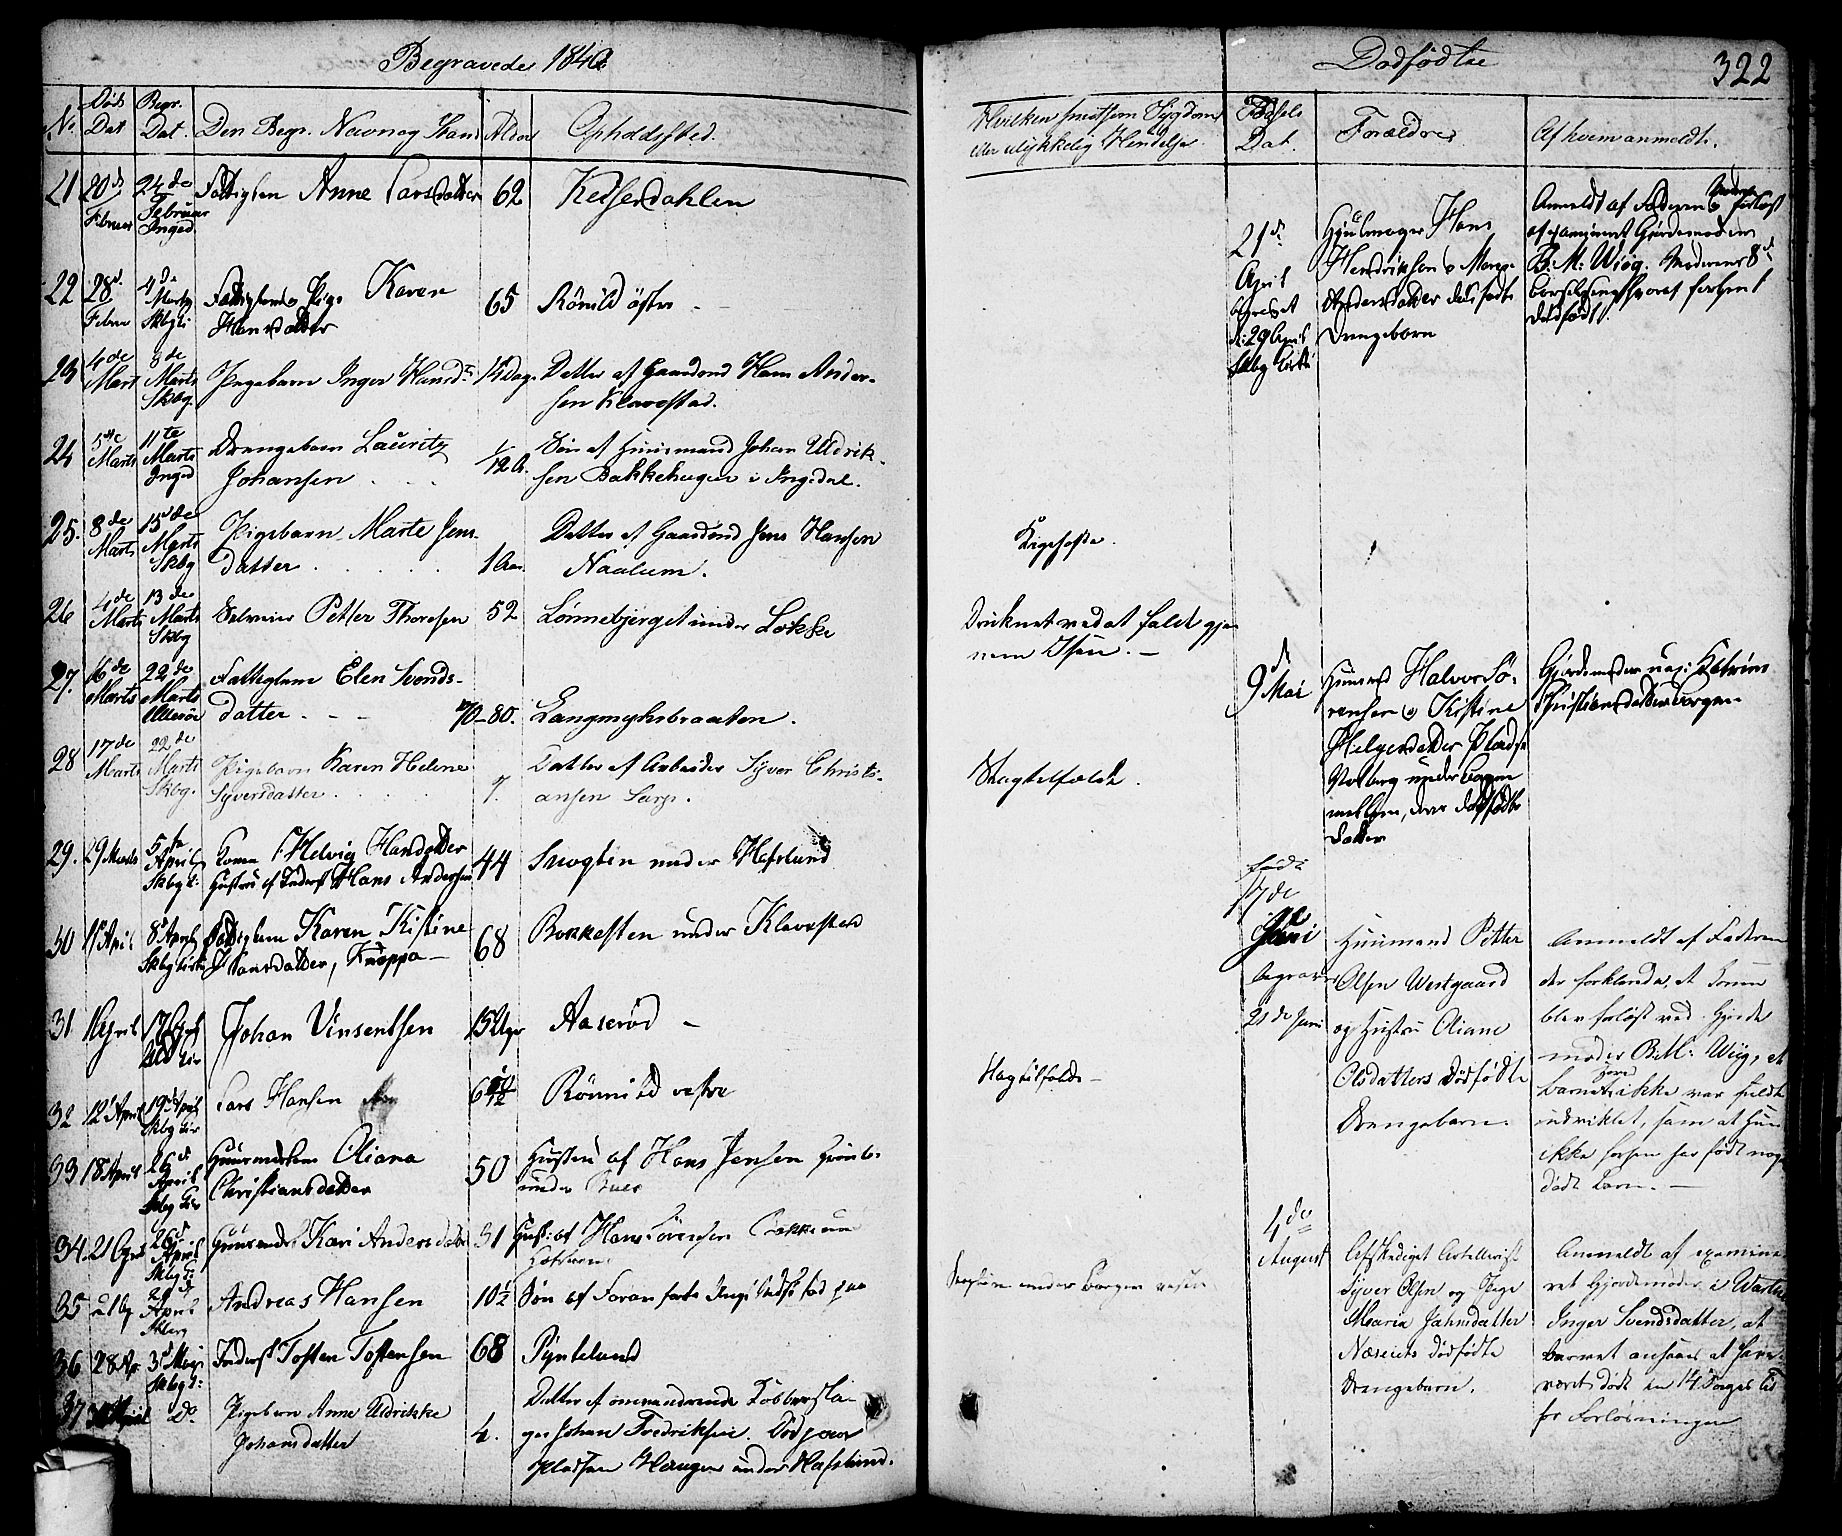 Begravede 1842
No. Døds Dat Begr. Dat. Den Begr. Navn og Stand Alder Opholdssted.
21 20d Februar 24de Februar Inged Fattiglem Anne Larsdatter 62 Keiserdahlen
22 28d Febru 4de Marts Skbg Fattiglem Pige Karen
Hansdatter 65 Rönild östre
23 4de Mart 8de Marts Skbg. Pigebarn Inger Hansd. 14 Dage Datter af Gaardmd Hans Ander-
sen Klavestad.
24 5te Marts 11te Marts Inged Drengebarn Lauritz
Johansen 1/12 A. Sön af Huusmand Johan Uldrik-
sen Bakkehagen i Ingedal.
25. 8de Marts 15de Marts Skbg Pigebarn Marte Jens-
datter 1 Aar. Datter af Gaardmd Jens Hansen
Naalum.
26 4de Marts 13de Marts Skbg Petter Thoresen 52 Lönnebjerget under Løkke
27. 16de Marts 22de Marts Ullerøe Fattiglem Elen Svends-
datter. 70-80. Langmyhrbraaten.
28 17de Marts 22de Marts Skbg. Pigebarn Karen Helene
Syversdatter 7. Datter af Arbeider Syver Christi-
ansen Sarp.
29. 29 Marts 5te April Skbg Konen Helvig Hansdatter
Hustru af Inderst Hans Andersen 44 under Hafslund
30 1 April 8 April Skbg Kirke Fattiglem Karen Kistine
Hansdatter, Knoppa 68 Bakkesten under Klavestad
31 April 17 April Johan Vinsentsen 15 Uger Aaserød
32 12 April 19 April Skbg Kir Lars Hansen 64½ Rönnild vestre
33 18 April 26d April Skbg Kir Oliana
Christiansdatter 50 Hustru af Hans Jensen
under
34. 21 April 26d April Skbg Kari Andersdatter 31 Hust: af Hans Sörensen Bakke
35 21 Ap April Skberg Andreas Hansen 10½ Sön af
36 28 Ap 3d Mai Skbg Inderst Tosten Tostensen 68 Pynteland
37 April Do Pigebarn Anne Uldrikke
Johansdatter 4. Datter af omvandrende Kobbersla-
ger Johan Fredriksen. Död paa
Pladsen Haugen under Hafslund.
Dødfødte 322
Hvilken smitsom Sygdom
eller ulykkelig Hendelse Fødsels Dat. Forældre Af hvem anmeldt.
21d. April
begravet
d: 29 April
Skbg Kirke
Hjulmager Hans
Hendriksen & Maren
Andersdatter dødfødte
Drengebarn
Anmeldt af Faderen
af examineret Gjordemoder
B. M: Wiig. Moderens 8d
Dödfödt.
Kighoste.
Druknet ved at falde gjen
nem Isen.
9d Mai
Huusmd Halvor Sö-
rensen og Kistine
Helgesdatter Plads
under Borgen
mellem, deres dødfødte
Datter
Gjordemoder uex: Katrine
Christiansdatter Borgen
Slagtilfælde.
födt
17de
Juni
begravet
21de Juni
Huusmand Petter
Olsen Westgaard
og Hustru Oliane
Olsdatters Dödfödte
Drengebarn.
Anmeldt af Faderen
der forklarede, at Konen
blev forløst ved Gjorde
moder B. M: Wiig, at
Barnet ikke var fuldt
udviklet, samt at Hun
ikke forhen har født noget
dødt Barn.
Slagtilfælde
4de
August
Afskediget Artellerist
Syver Olsen og Pige
Maria Jahnsdatter
Næseiets dödfödte
Drengebarn.
Anmeldt af examine-
ret Gjordemoder i Warteig
Inger Svendsdatter, at
Barnet ansaaes at have
været dödt en 14 Dages Tid
før Forløsningen
under Borgen